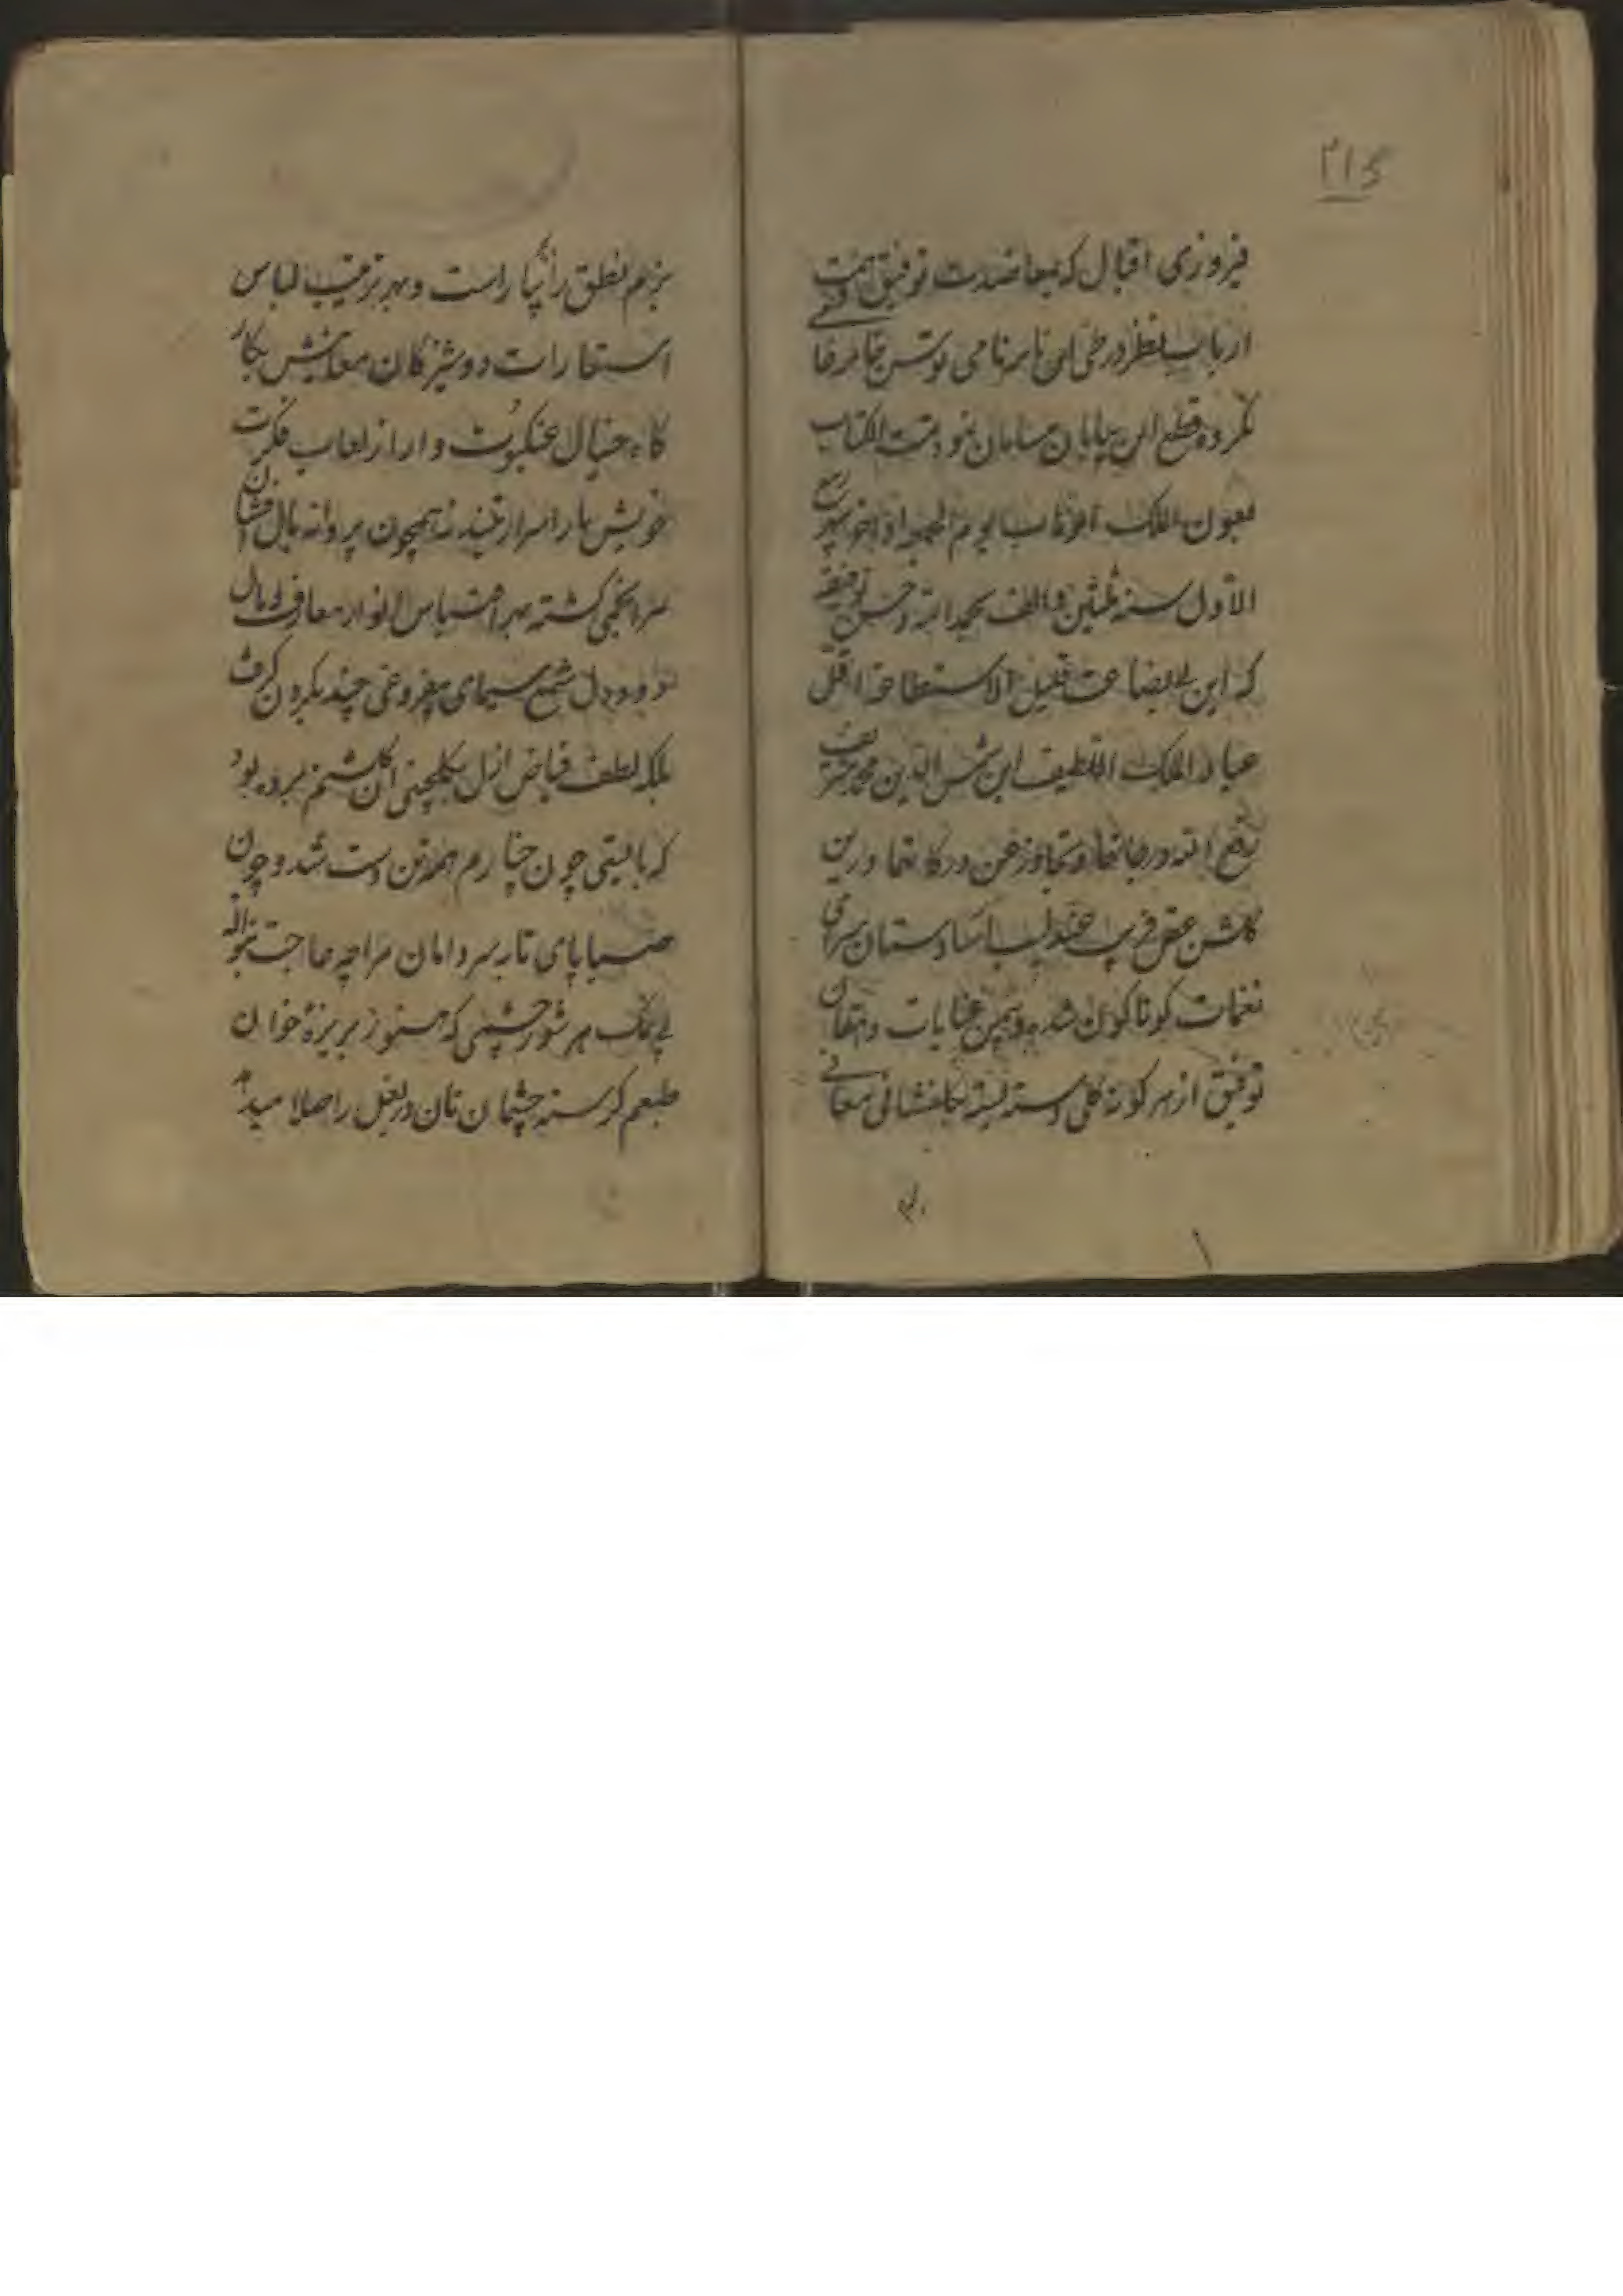 ۲۱۶
فیروزی اقبال که بمعاضدت توفیق همت
ارباب نظر در طی این نامه نامی توسن خامه
نکرده قطع این بیابان سامان نمود تمت الکتاب
بعون الملک الوهاب یوم الجمعه اواخر شهر ربیع
الاول سنه ثلثین و الف بحمد الله و حسن توفیقه
که این بی بضاعت قلیل الاستطاعة اقل
عباد الملک اللطیف ابن شمس الدین محمد شریف
رفع الله درجاتهما و تجاوز عن درکاتهما درین
گلشن عقل فریب عندلیب آسا دستان سرای
نغمات کوناکون شده و بیمن عنایات دهقان
توفیق از هر کونه گلی دسته بسته بگلفشانی معانی
بزم نطق را بیاراست و بهر ترتیب لباس
استعارات دوشیزگان معانیش بکار
گاه خیال عنکبوت وار از لعاب فکرت
خویش تار اسرار تنیده نه همچون پروانه بال افشان
سرانجمی گشته بهر اقتباس انوار معارف
دل شمع سیمای بیفروغی چند بگردن گرفت
بلکه لطف فیاض ازل بگلچینی آن گلشنم برده بود
که بایستی چون چنارم همه تن دست شد و چون
صبا پای تا بسر دامان مرا چه حاجت بنواله
بی نمک هر شور چشمی که هنوز بریزهٔ خوان
طبعم گرسنه چشمان نان در بغل را صلا میدهد